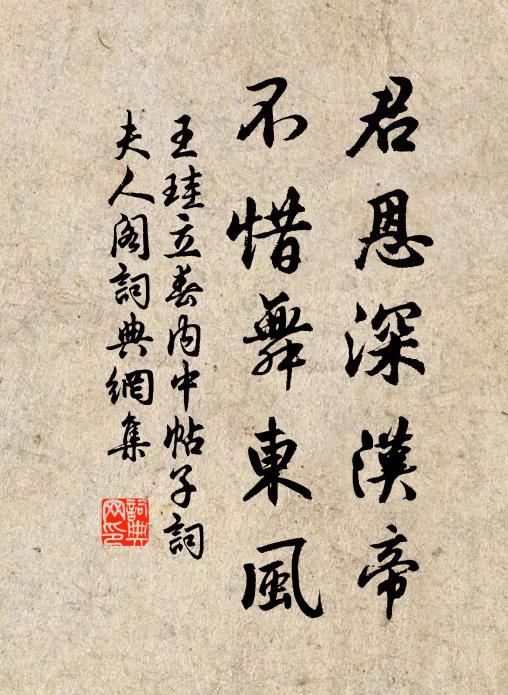 君恩深漢帝
不惜舞東風
王珪立春內中帖子詞
夫人閣詞典網集
詞典
网印